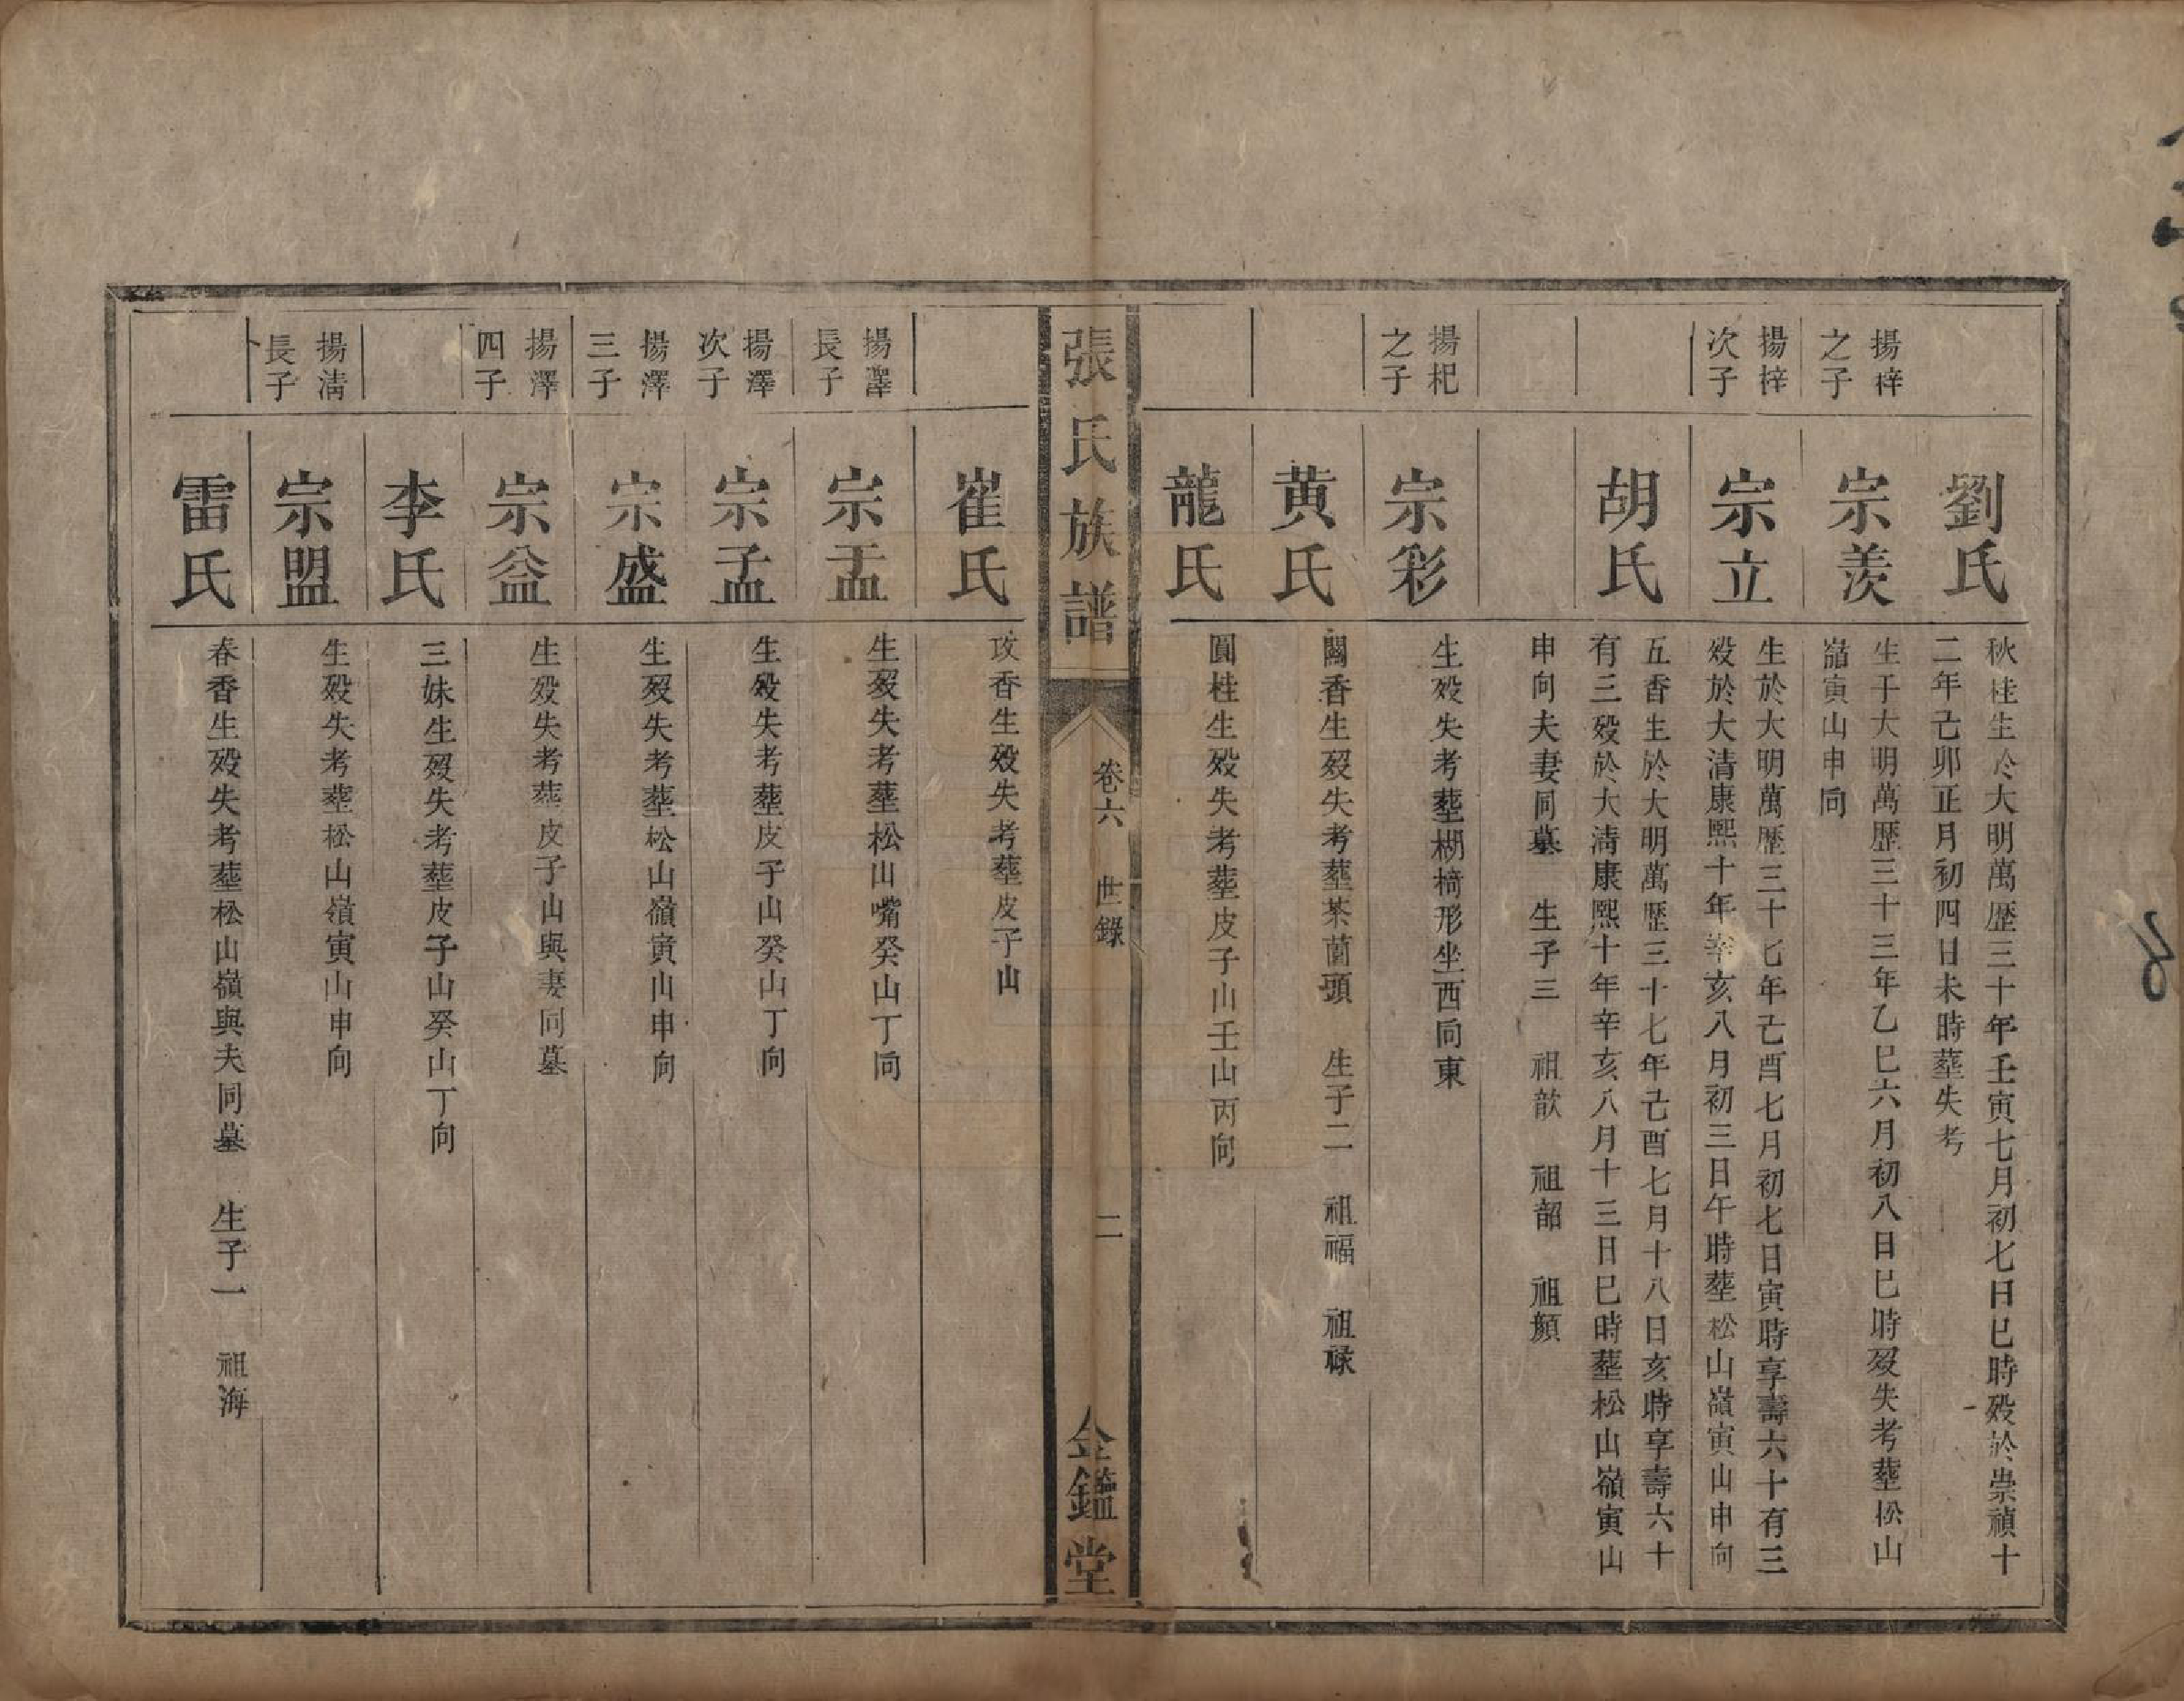 劉氏
秋桂生於大明萬歴三十年壬寅七月初七日巳時殁於崇禎十
二年己卯正月初四日未時塟失考
揚梓
之子
宗羨
生于大明萬歴三十三年乙巳六月初八日巳時殁失考塟松山
嵓寅山申向
揚梓
次子
宗立
生於大明萬歴三十七年己酉七月初七日寅時享壽六十有三
殁於大清康熙十年辛亥八月初三日午時塟松山嶺寅山申向
胡氏
五香生於大明萬歴三十七年己酉七月十八日亥時享壽六十
有三殁於大清康熙十年辛亥八月十三日巳時塟松山嶺寅山
申向夫妻同墓 生子三 祖歆 祖韶 祖顏
揚杞
之子
宗彩
生殁失考塟椕椅形坐西向東
黄氏
闖香生殁失考塟茶薗頭 生子二 祖福 祖禄
龍氏
圓桂生殁失考塟皮子山壬山丙向
張氏族譜
卷六 世錄
二
金鑑堂
崔氏
攻香生殁失考塟皮子山
揚澤
長子
宗盂
生殁失考塟松山嘴癸山丁向
揚澤
次子
宗孟
生殁失考塟皮子山癸山丁向
揚澤
三子
宗盛
生殁失考塟松山嶺寅山申向
揚澤
四子
宗益
生殁失考塟皮子山與妻同墓
李氏
三妹生殁失考塟皮子山癸山丁向
揚清
長子
宗盟
生殁失考塟松山嶺寅山申向
雷氏
春香生殁失考塟松山嶺與夫同墓 生子一 祖海